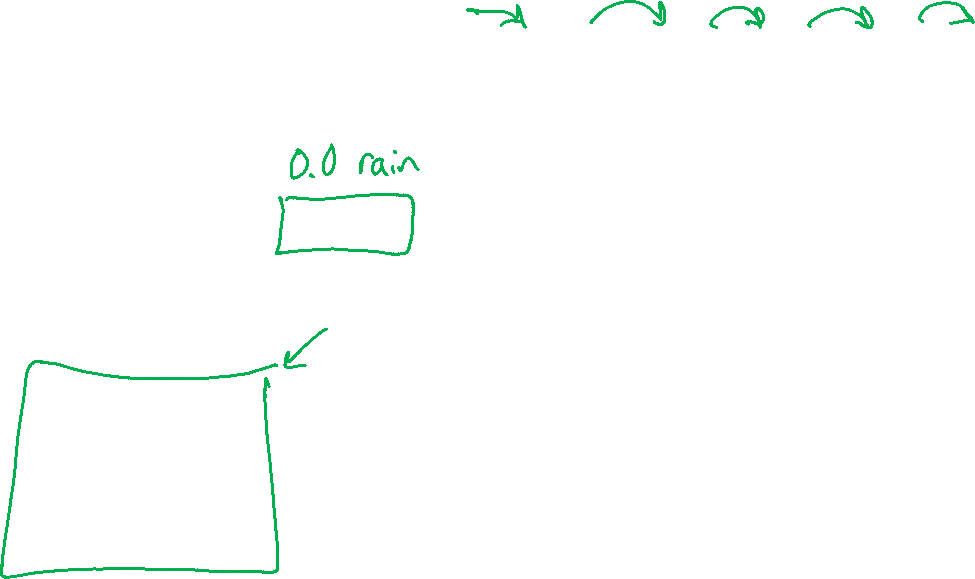 0.0 rain